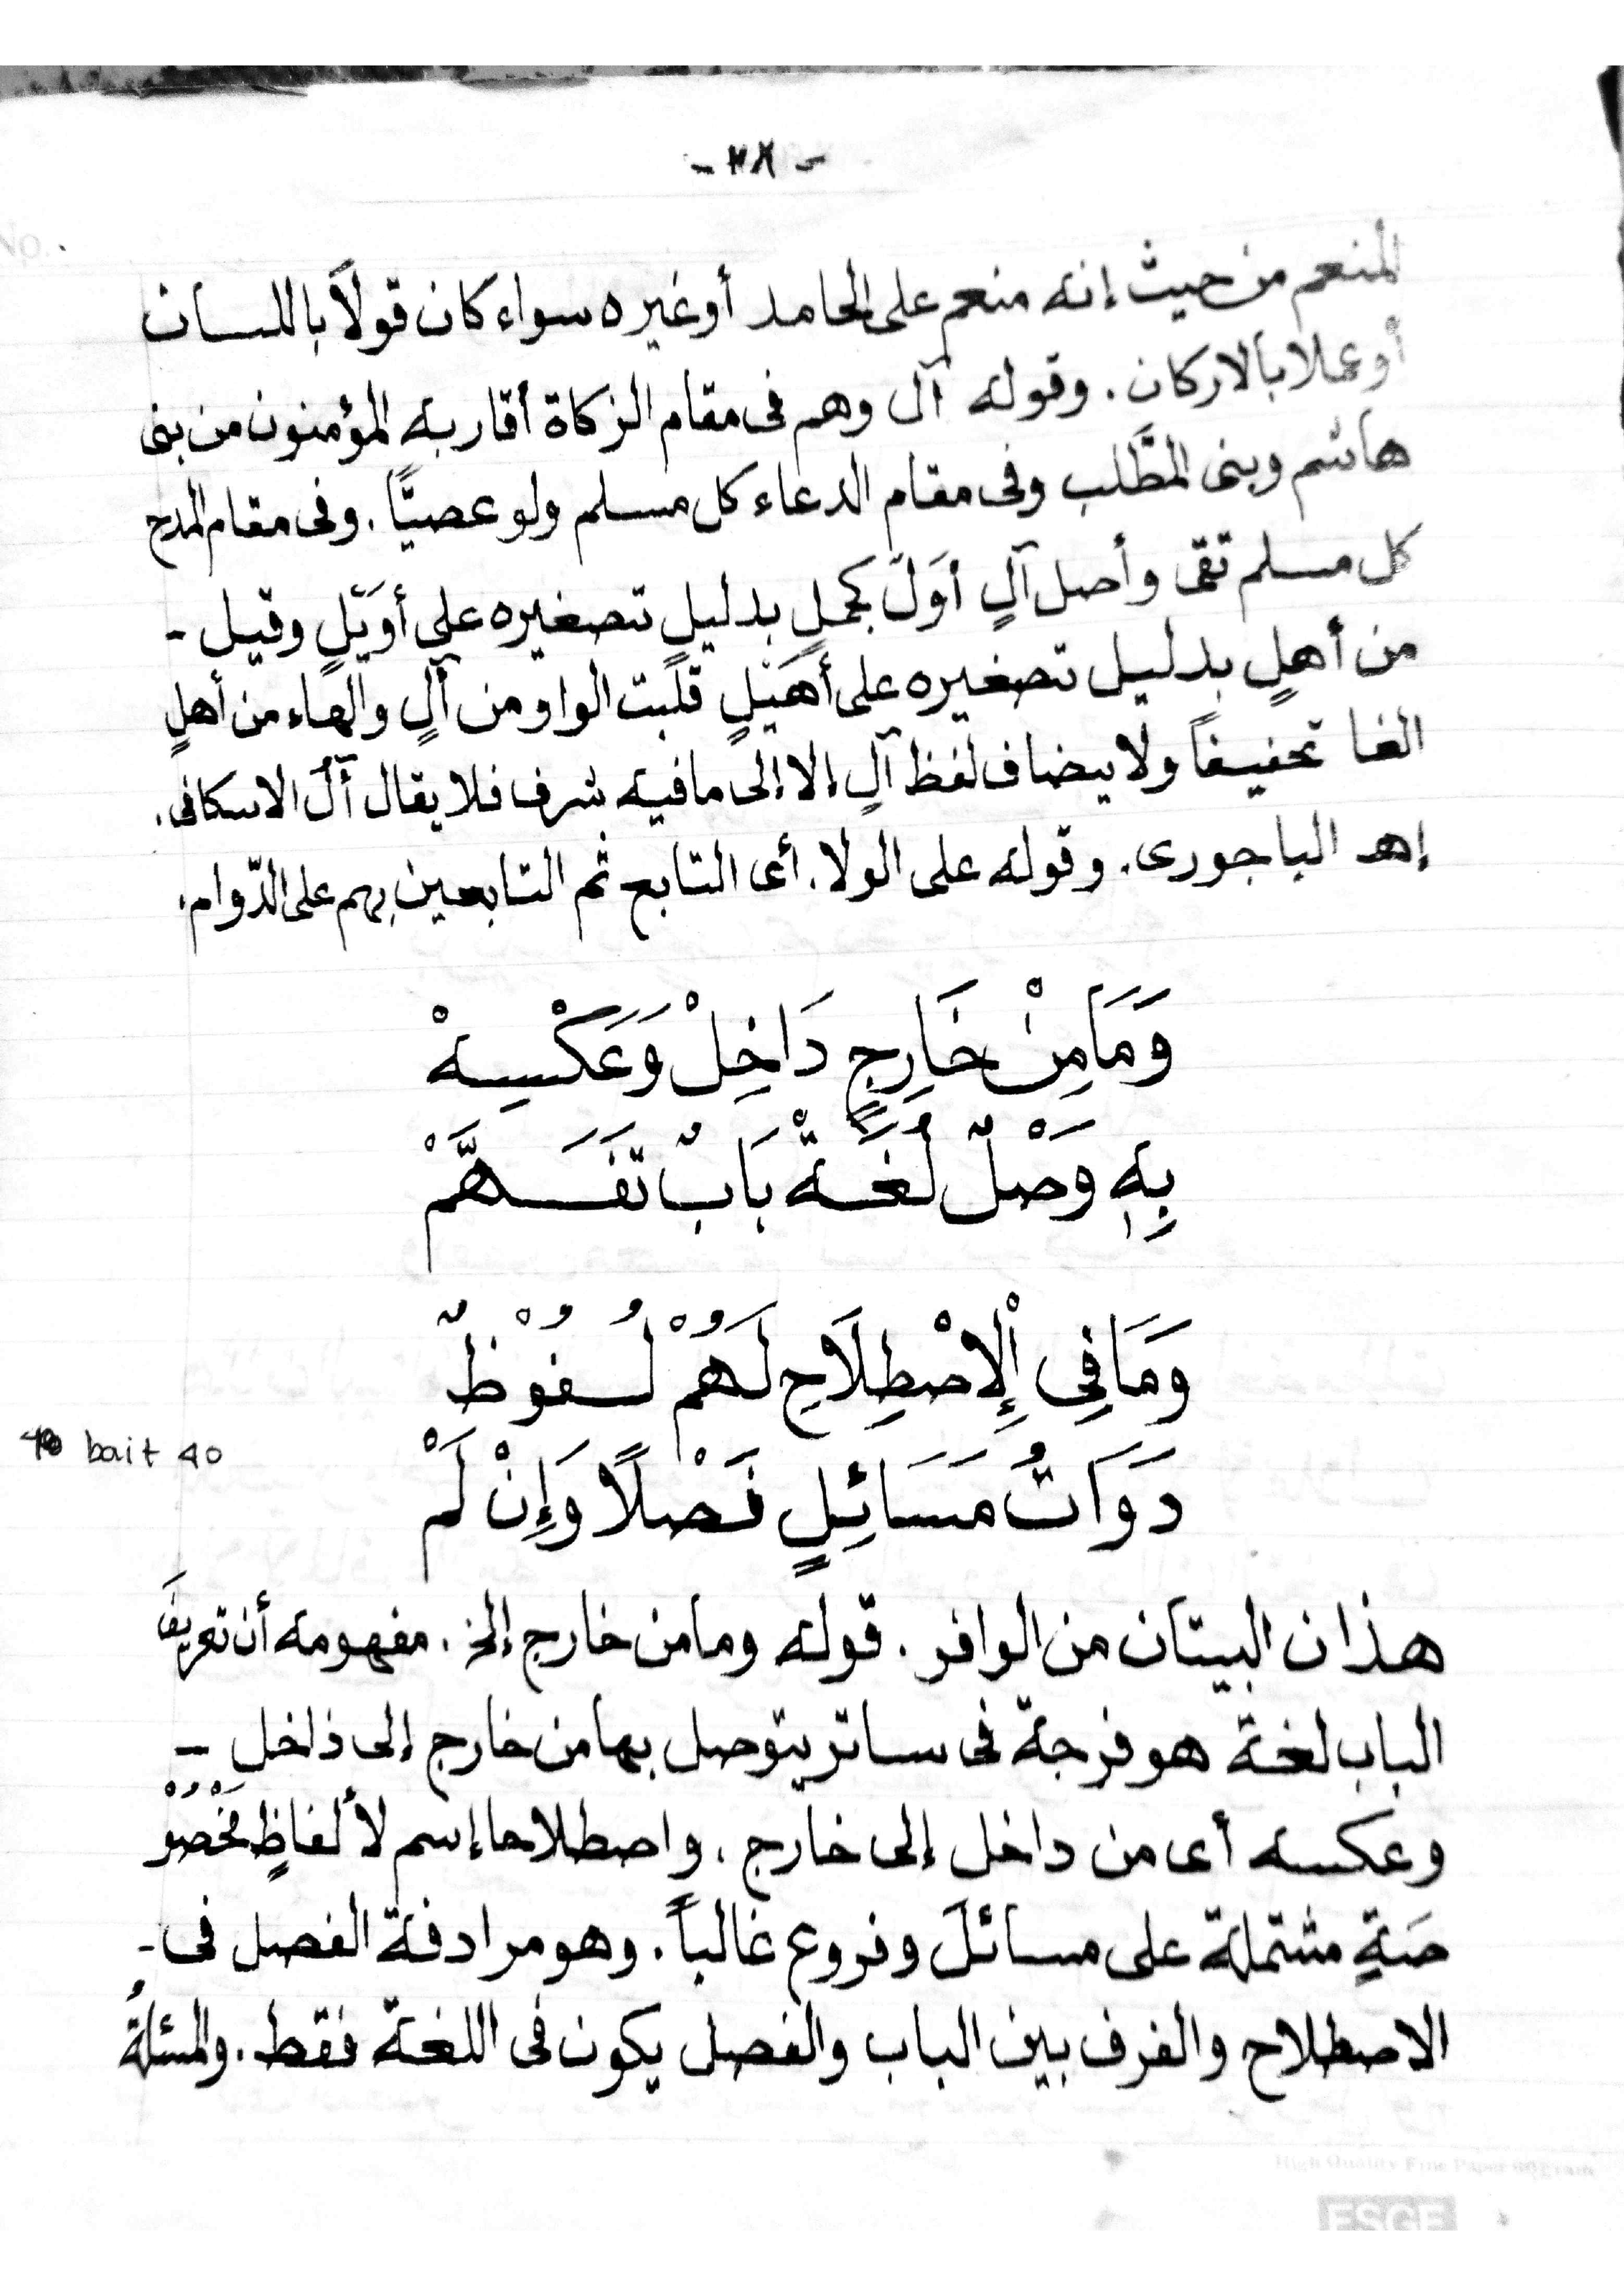 - ٣٨ -
المنعم من حيث إنه منعم على الحامد أو غيره سواء كان قولاً باللسان
أو عملا بالاركان . وقوله آل وهم فى مقام الزكاة أقاربه المؤمنون من بنى
هاشم وبنى المطَّلب وفى مقام الدعاء كل مسلم ولو عصيًّا . وفى مقام المدح
كل مسلم تقى وأصل آلٍ أَوَلٌ كجملٍ بدليلٍ تصغيره على أُوَيْلٍ وقيل -
من أهلٍ بدليل تصغيره على أُهَيْلٍ قلبت الواو من آلٍ والهاء من أهلٍ
الفا تخفيفاً ولا يضاف لفظ آلٍ إلا إلى ما فيه شرف فلا يقال آلُ الاسكافى .
إهـ الباجورى . وقوله على الولا . أى التابع ثم التابعين بهم على الدّوام .
وَمَا مِنْ خَارِجٍ دَاخِلْ وَعَكْسِهْ
بِهِ وَصْلٌ لُغَةْ بَابٌ تَفَهَّمْ
وَمَا فِى اْلِاصْطِلَاحِ لَهُمْ لُفُوْظٌ
دَوَاتُ مَسَائِلٍ فَصْلًا وَإِنْ لَمْ
bait 40
هذان البيتان من الوافر . قوله وما من خارج إلخ . مفهومه أن تعريفَ
الباب لغة هو فرجة فى ساتر يتوصل بها من خارج إلى ذاخل -
وعكسه أى من داخل إلى خارج . واصطلاحا إسم لألفاظٍ مَخْصُوْ
صَةٍ مشتملة على مسائلَ وفروع غالباً . وهو مرادفة الفصل فى -
الاصطلاح والفرف بين الباب والفصل يكون فى اللغة فقط . والمسئلةُ
High Quality Fine Paper